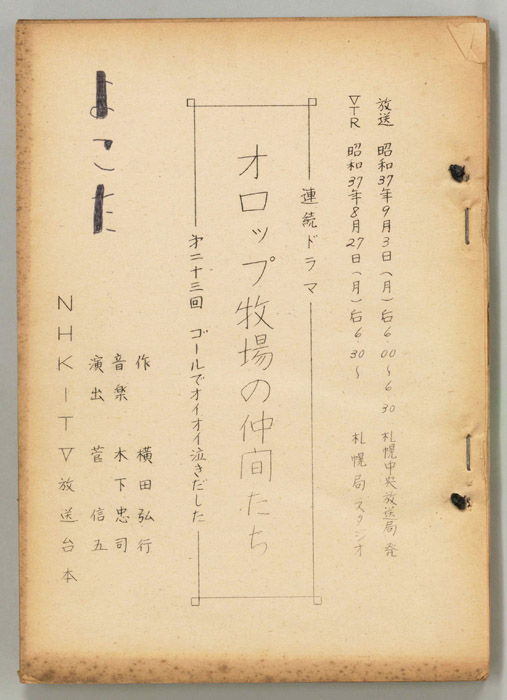 放送 昭和37年9月3日(月)后6.00〜6.30 札幌中央放送局発
VTR 昭和37年8月27日(月)后6.30〜 札幌局スタジオ
連続ドラマ
オロップ牧場の仲間たち
第二十三回 ゴールでオイオイ泣きだした
作 横田弘行
音楽 木下忠司
演出 菅信五
よこた
NHK-TV放送台本